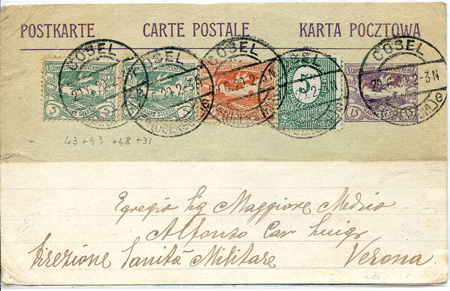 POSTKARTE CARTE POSTALE KARTA POCZTOWA
COSEL COSEL COSEL COSEL
5 5 5 15
43 + 43 + 48 + 31
Egregio Sig Maggiore Medico
Alfonso Cav Luigi
Direzione Sanità Militare Verona